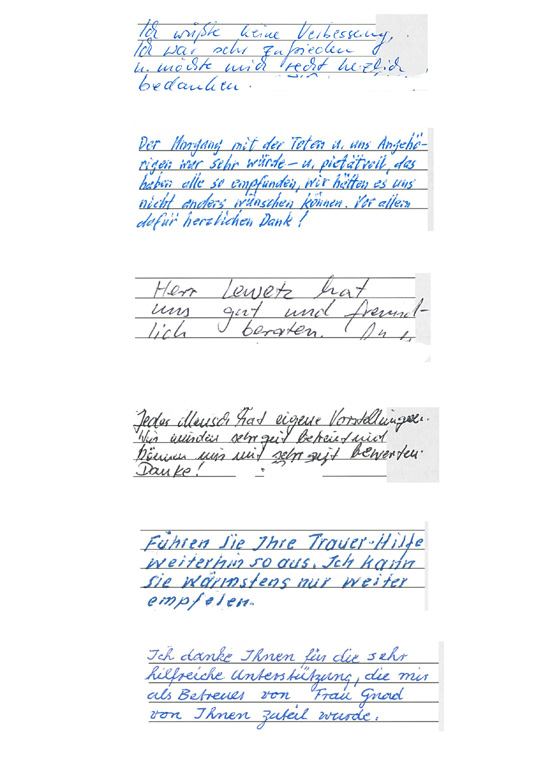 Ich wüßte keine Verbesserung,
Ich war sehr zufrieden
u. möchte mich recht herzlich
bedanken.
Der Umgang mit der Toten u. uns Angehö-
rigen war sehr würde- u. pietätvoll, das
haben alle so empfunden, wir hätten es uns
nicht anders wünschen können. Vor allem
dafür herzlichen Dank!
Herr Lewetz hat
uns gut und freund-
lich beraten.
Jeder Mensch hat eigene Vorstellungen.
Wir wurden sehr gut betreut und
können nur mit sehr gut bewerten.
Danke!
Führen Sie Ihre Trauer-Hilfe
weiterhin so aus. Ich kann
sie wärmstens nur weiter
empfelen.
Ich danke Ihnen für die sehr
hilfreiche Unterstützung, die mir
als Betreuer von Frau Gnad
von Ihnen zuteil wurde.